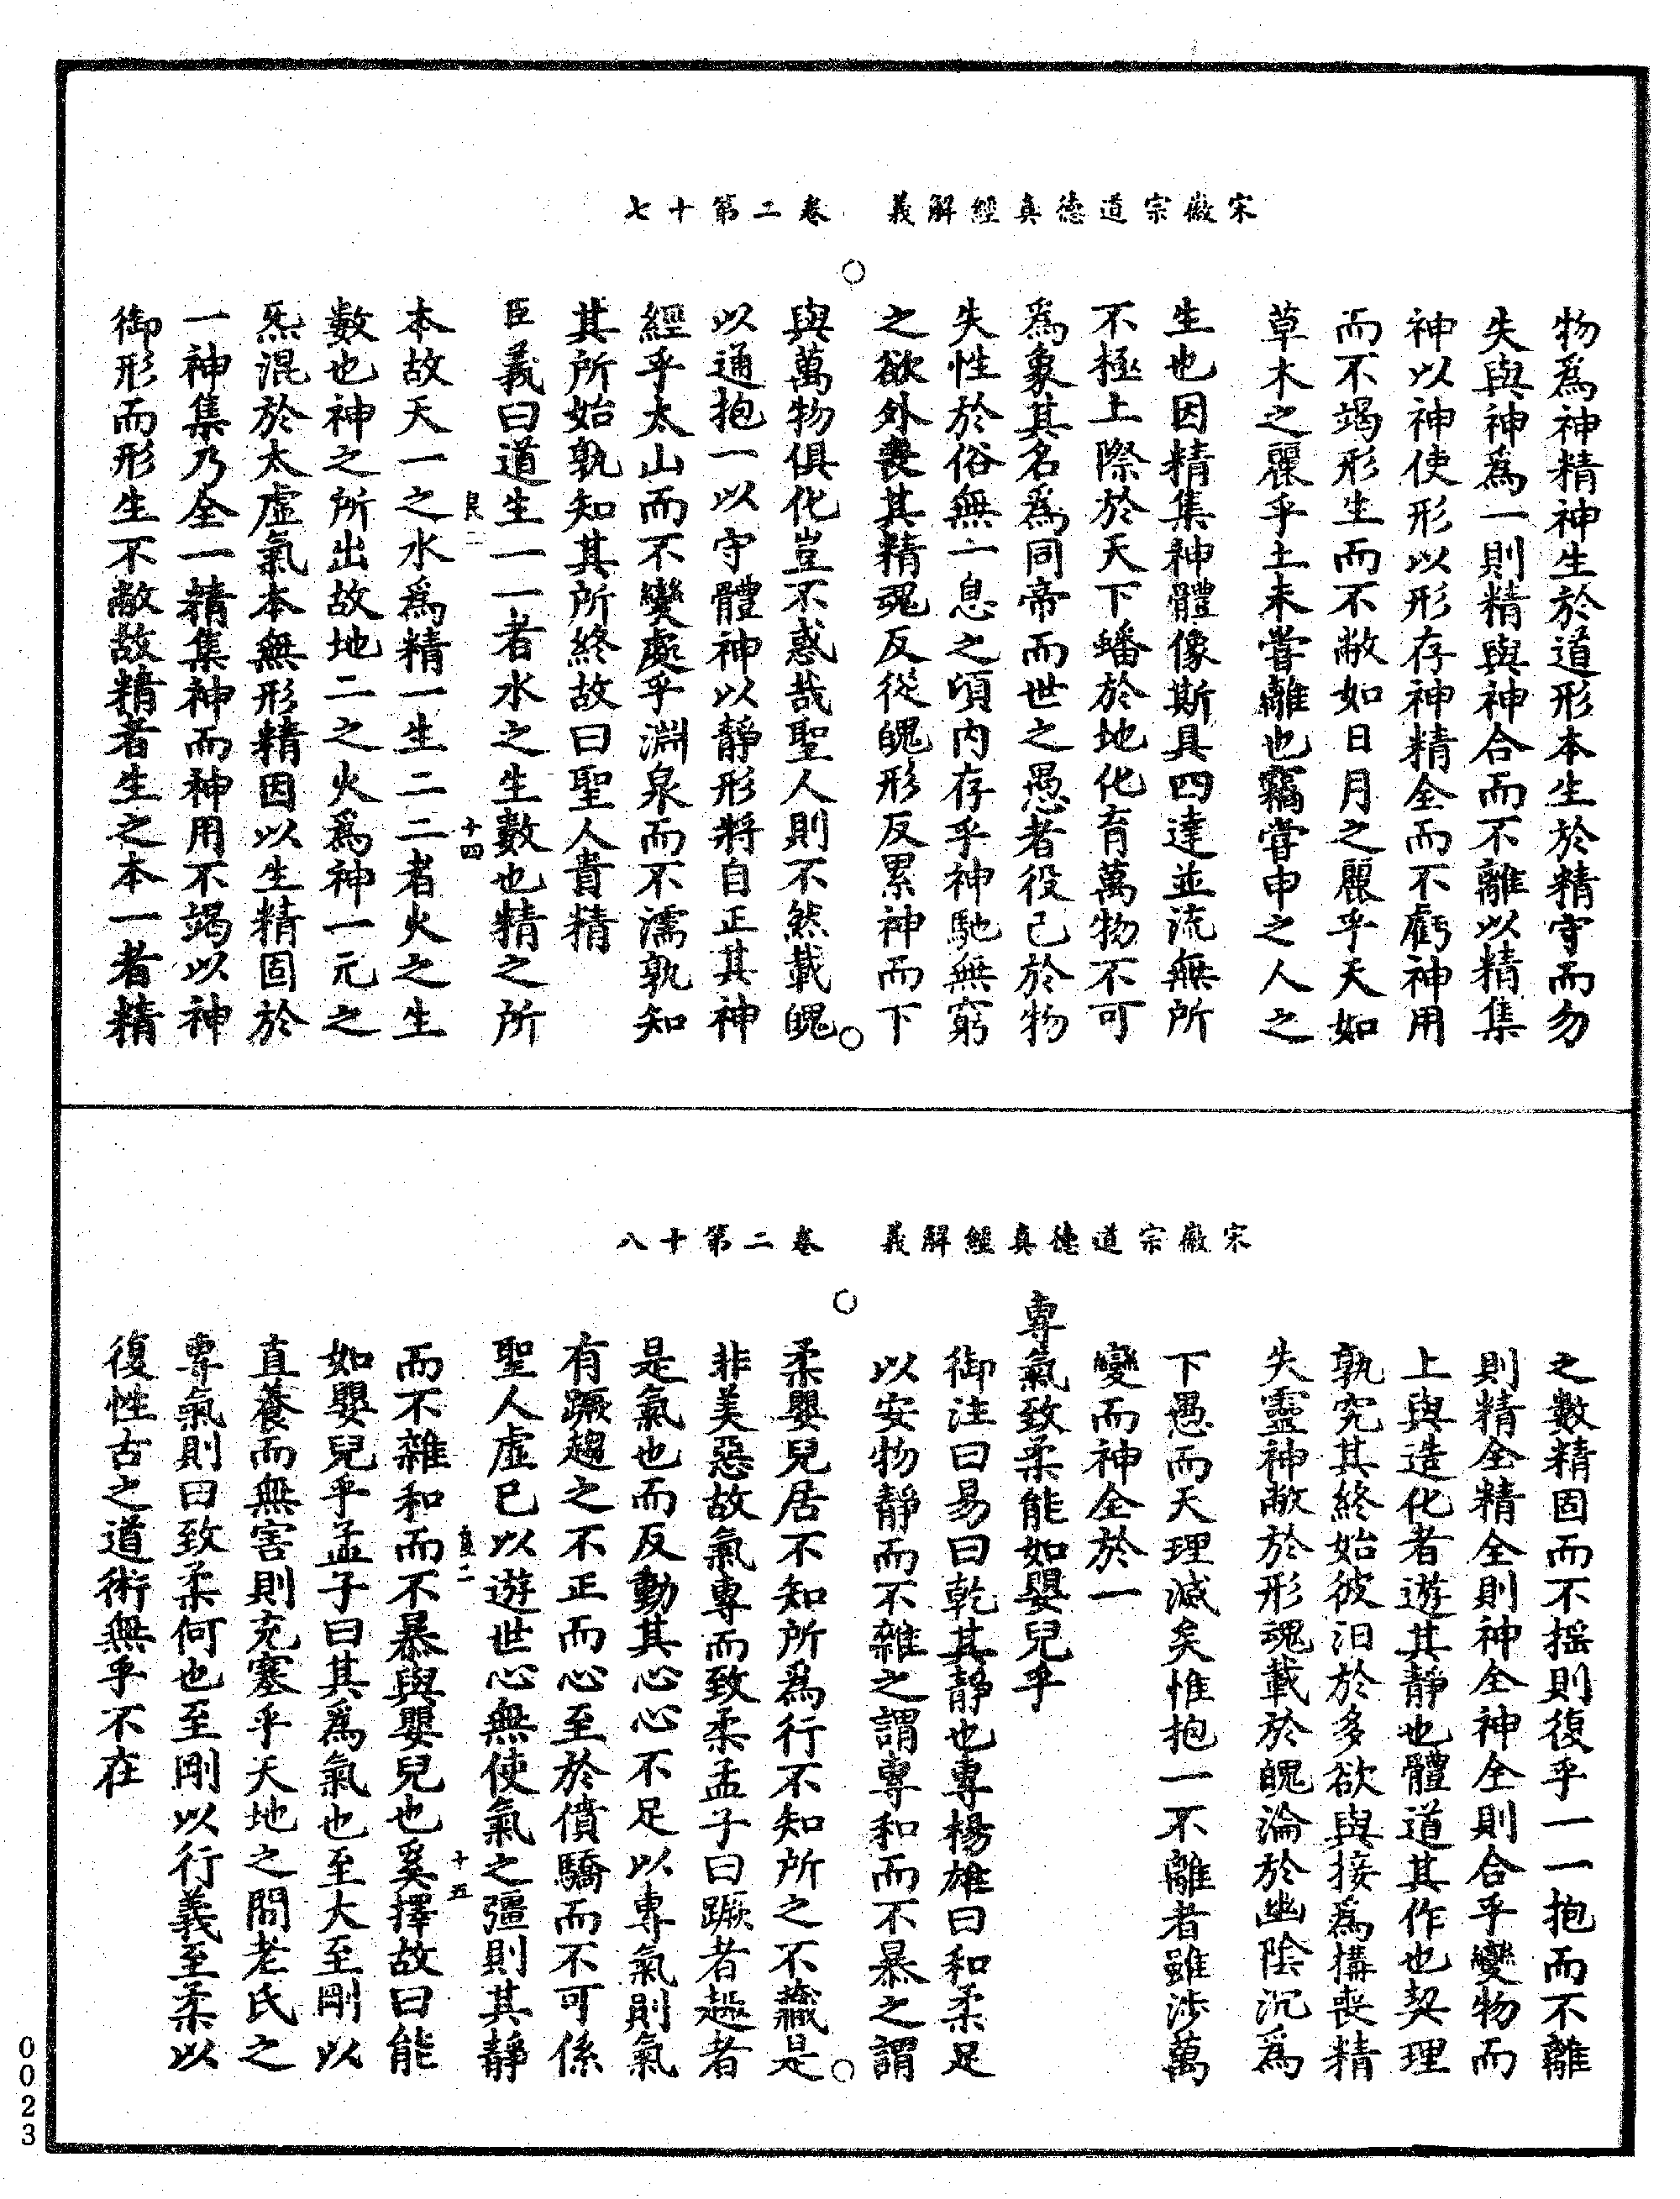 宋徽宗道德真經解義　卷二第十七
物為神精神生於道形本生於精守而勿
失與神為一則精與神合而不離以精集
神以神使形以形存神精全而不虧神用
而不竭形生而不敝如日月之麗乎天如
草木之麗乎土未嘗離也竊嘗申之人之
生也因精集神體像斯具四達並流無所
不極上際於天下蟠於地化育萬物不可
為象其名為同帝而世之愚者役己於物
失性於俗無一息之頃內存乎神馳無窮
之欲外喪其精魂反從魄形反累神而下
與萬物俱化豈不惑哉聖人則不然載魄
以通抱一以守體神以靜形將自正其神
經乎太山而不變處乎淵泉而不濡孰知
其所始孰知其所終故曰聖人貴精
臣義曰道生一一者水之生數也精之所
良二　十四
本故天一之水為精一生二二者火之生
數也神之所出故地二之火為神一元之
炁混於太虛氣本無形精因以生精固於
一神集乃全一精集神而神用不竭以神
御形而形生不敝故精者生之本一者精
宋徽宗道德真經解義　卷二第十八
之數精固而不搖則復乎一一抱而不離
則精全精全則神全神全則合乎變物而
上與造化者遊其靜也體道其作也契理
孰究其終始彼汨於多欲與接為搆喪精
失靈神敝於形魂載於魄淪於幽陰沉為
下愚而天理滅矣惟抱一不離者雖涉萬
變而神全於一
專氣致柔能如嬰兒乎
御注曰易曰乾其靜也專楊雄曰和柔足
以安物靜而不雜之謂專和而不暴之謂
柔嬰兒居不知所為行不知所之不藏是
非美惡故氣專而致柔孟子曰蹶者趨者
是氣也而反動其心心不足以專氣則氣
有蹶趨之不正而心至於僨驕而不可係
聖人虛己以遊世心無使氣之彊則其靜
良二　十五
而不雜和而不暴與嬰兒也奚擇故曰能
如嬰兒乎孟子曰其為氣也至大至剛以
直養而無害則充塞乎天地之間老氏之
專氣則曰致柔何也至剛以行義至柔以
復性古之道術無乎不在
0023